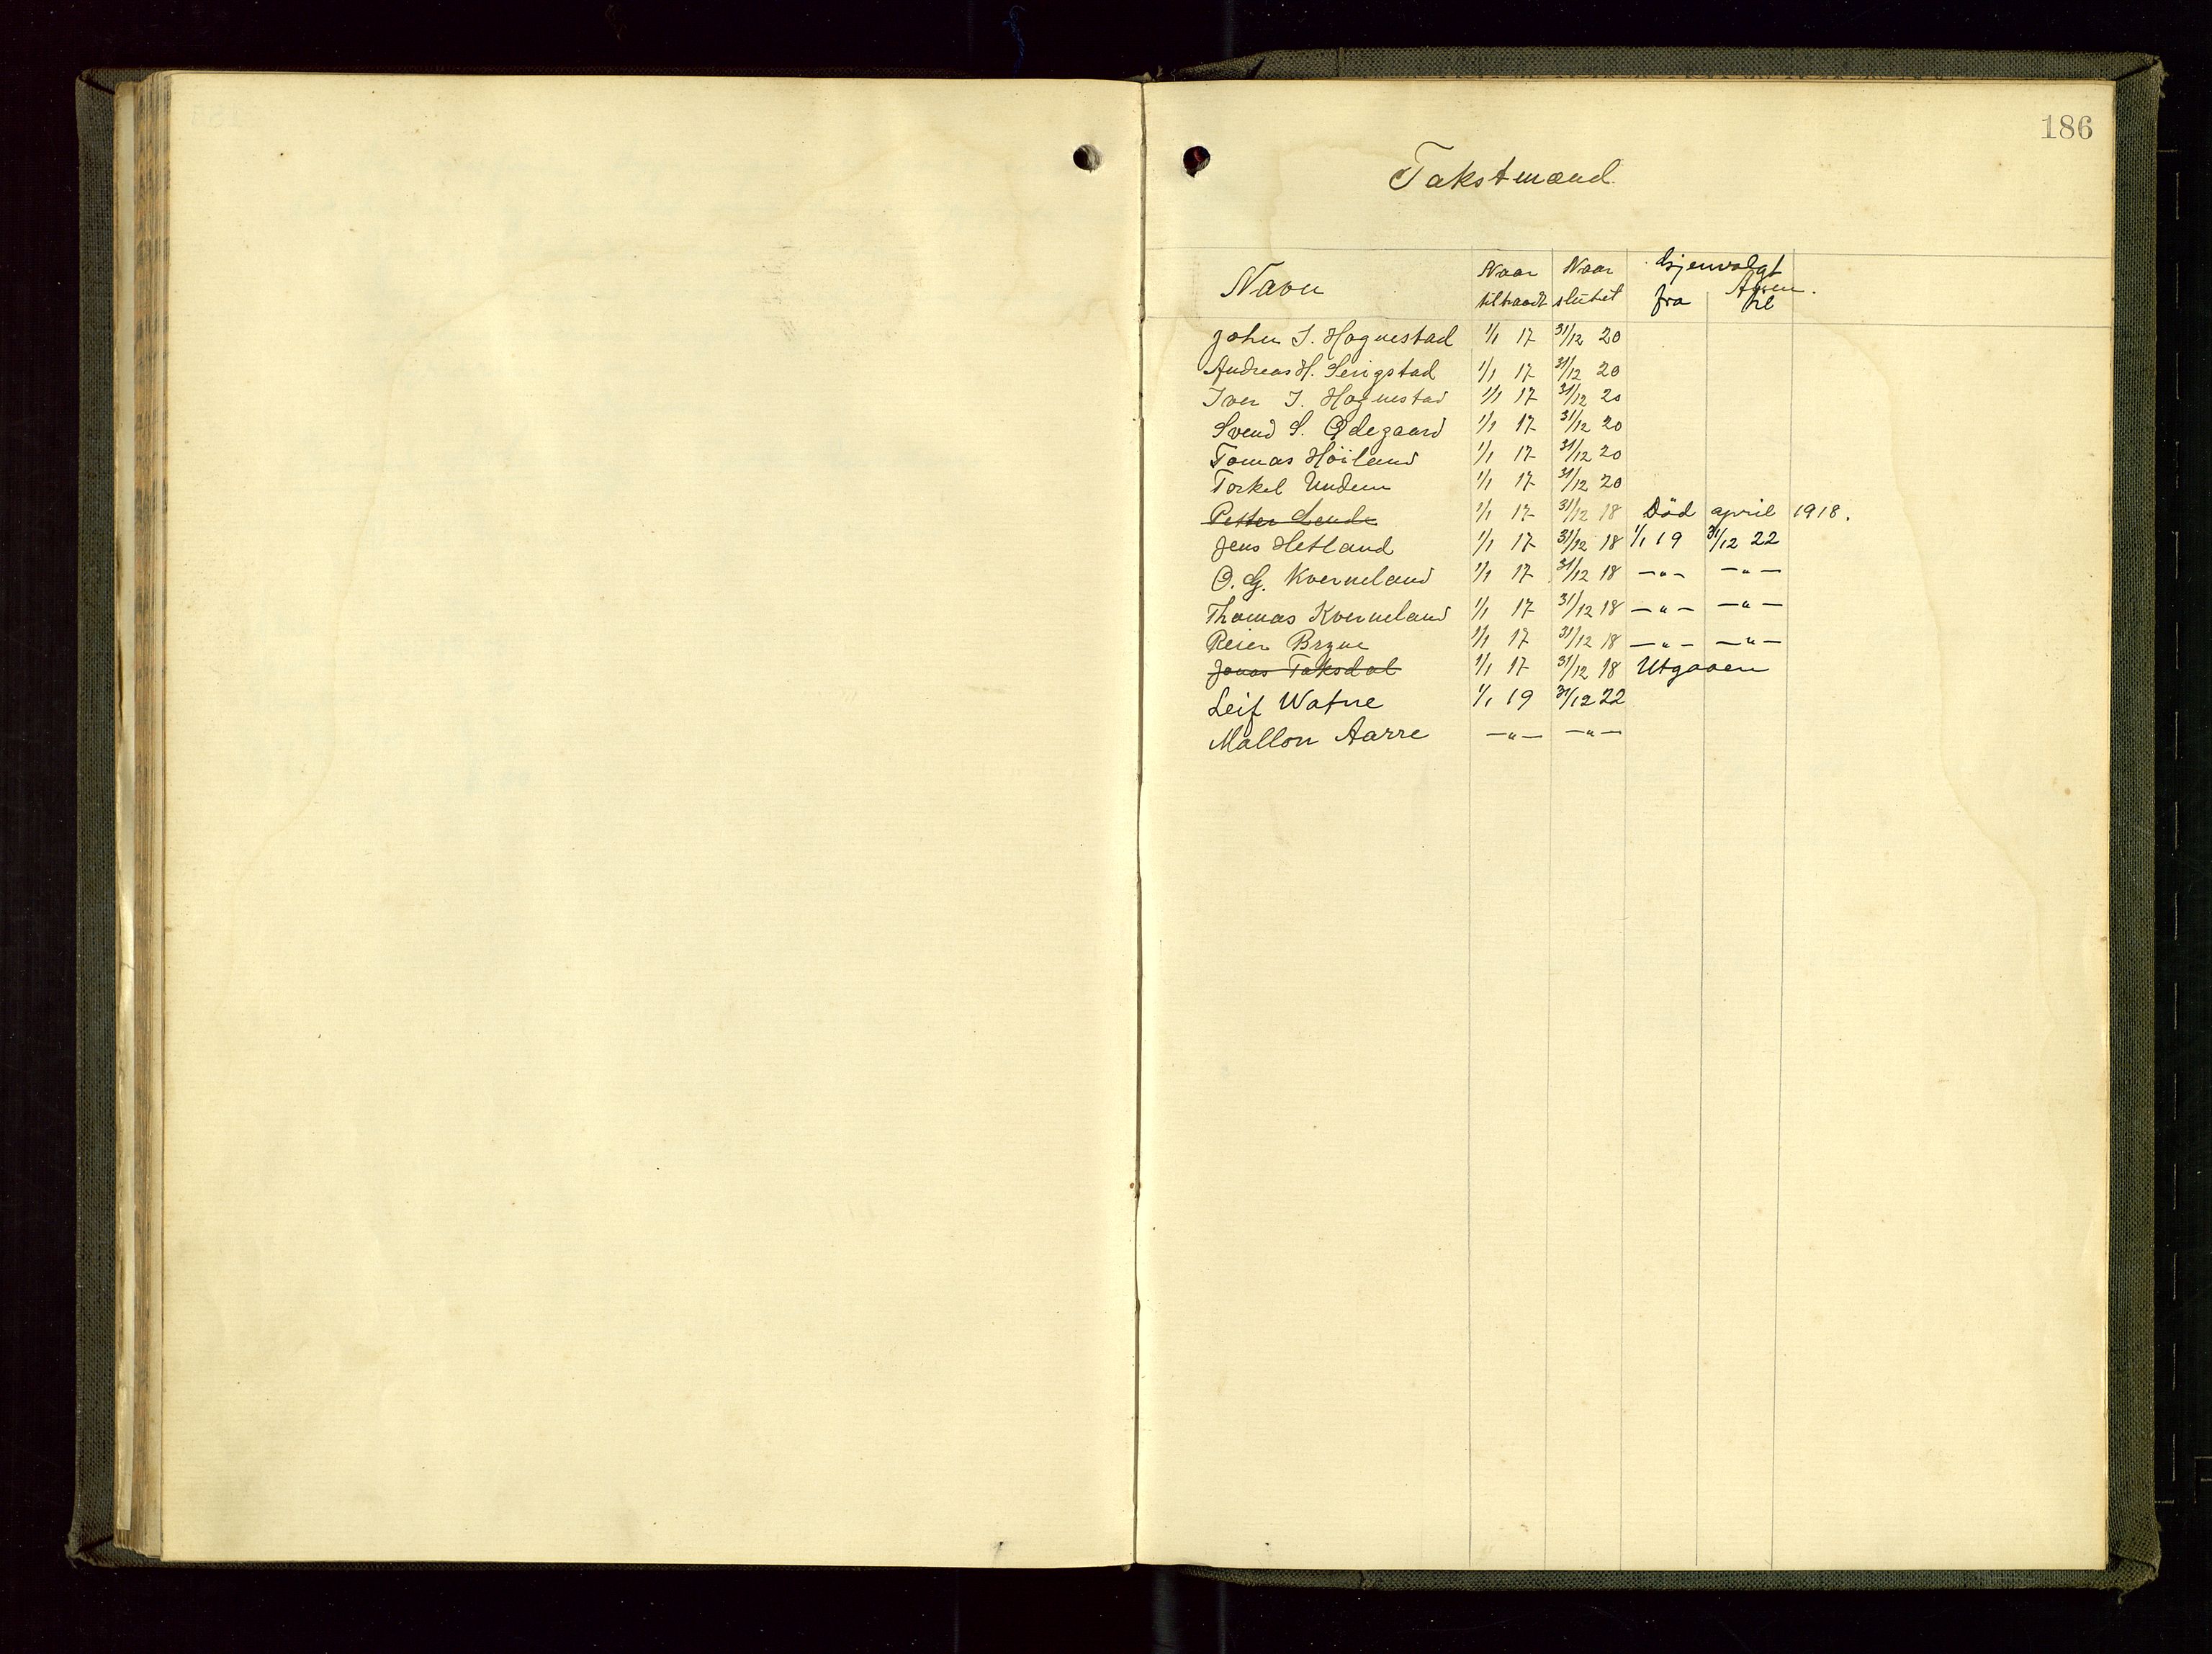 186
Takstmænd
Navn Naar tiltraadt Naar sluttet Gjenvalgt fra til
John I. Hognestad 1/1 17 31/12 20
Andreas H. Serigstad 1/1 17 31/12 20
Iver I. Hognestad 1/1 17 31/12 20
Svend S. Ødegaard 1/1 17 31/12 20
Tomas Høiland 1/1 17 31/12 20
Torkel Undem 1/1 17 31/12 20
Petter Lende 1/1 17 31/12 18 Död april 1918.
Jens Hetland 1/1 17 31/12 18 1/1 19 31/12 22
O. G. Kverneland 1/1 17 31/12 18 —"— —"—
Thomas Kverneland 1/1 17 31/12 18 —"— —"—
Reier Bryne 1/1 17 31/12 18 —"— —"—
Jonas Taksdal 1/1 17 31/12 18 Utgaaen
Leif Watne 1/1 19 31/12 22
Mallon Aarre —"— —"—